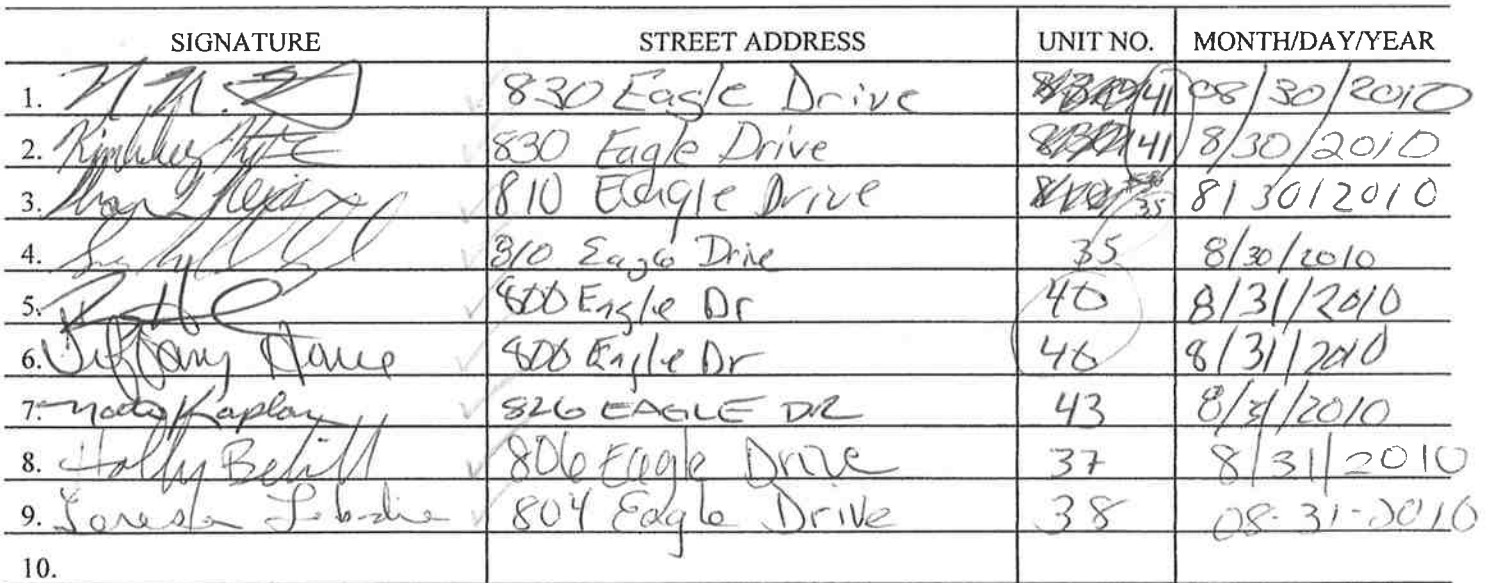 SIGNATURE STREET ADDRESS UNIT NO. MONTH/DAY/YEAR
1. 830 Eagle Drive 41 08/30/2010
2. 830 Eagle Drive 41 8/30/2010
3. 810 Eagle Drive 35 8/30/2010
4. 810 Eagle Drive 35 8/30/2010
5. 800 Eagle Dr 40 8/31/2010
6. Tiffany 800 Eagle Dr 40 8/31/2010
7. Kaplan 826 EAGLE DR 43 8/31/2010
8. Holly 806 Eagle Drive 37 8/31/2010
9. 804 Eagle Drive 38 08-31-2010
10.